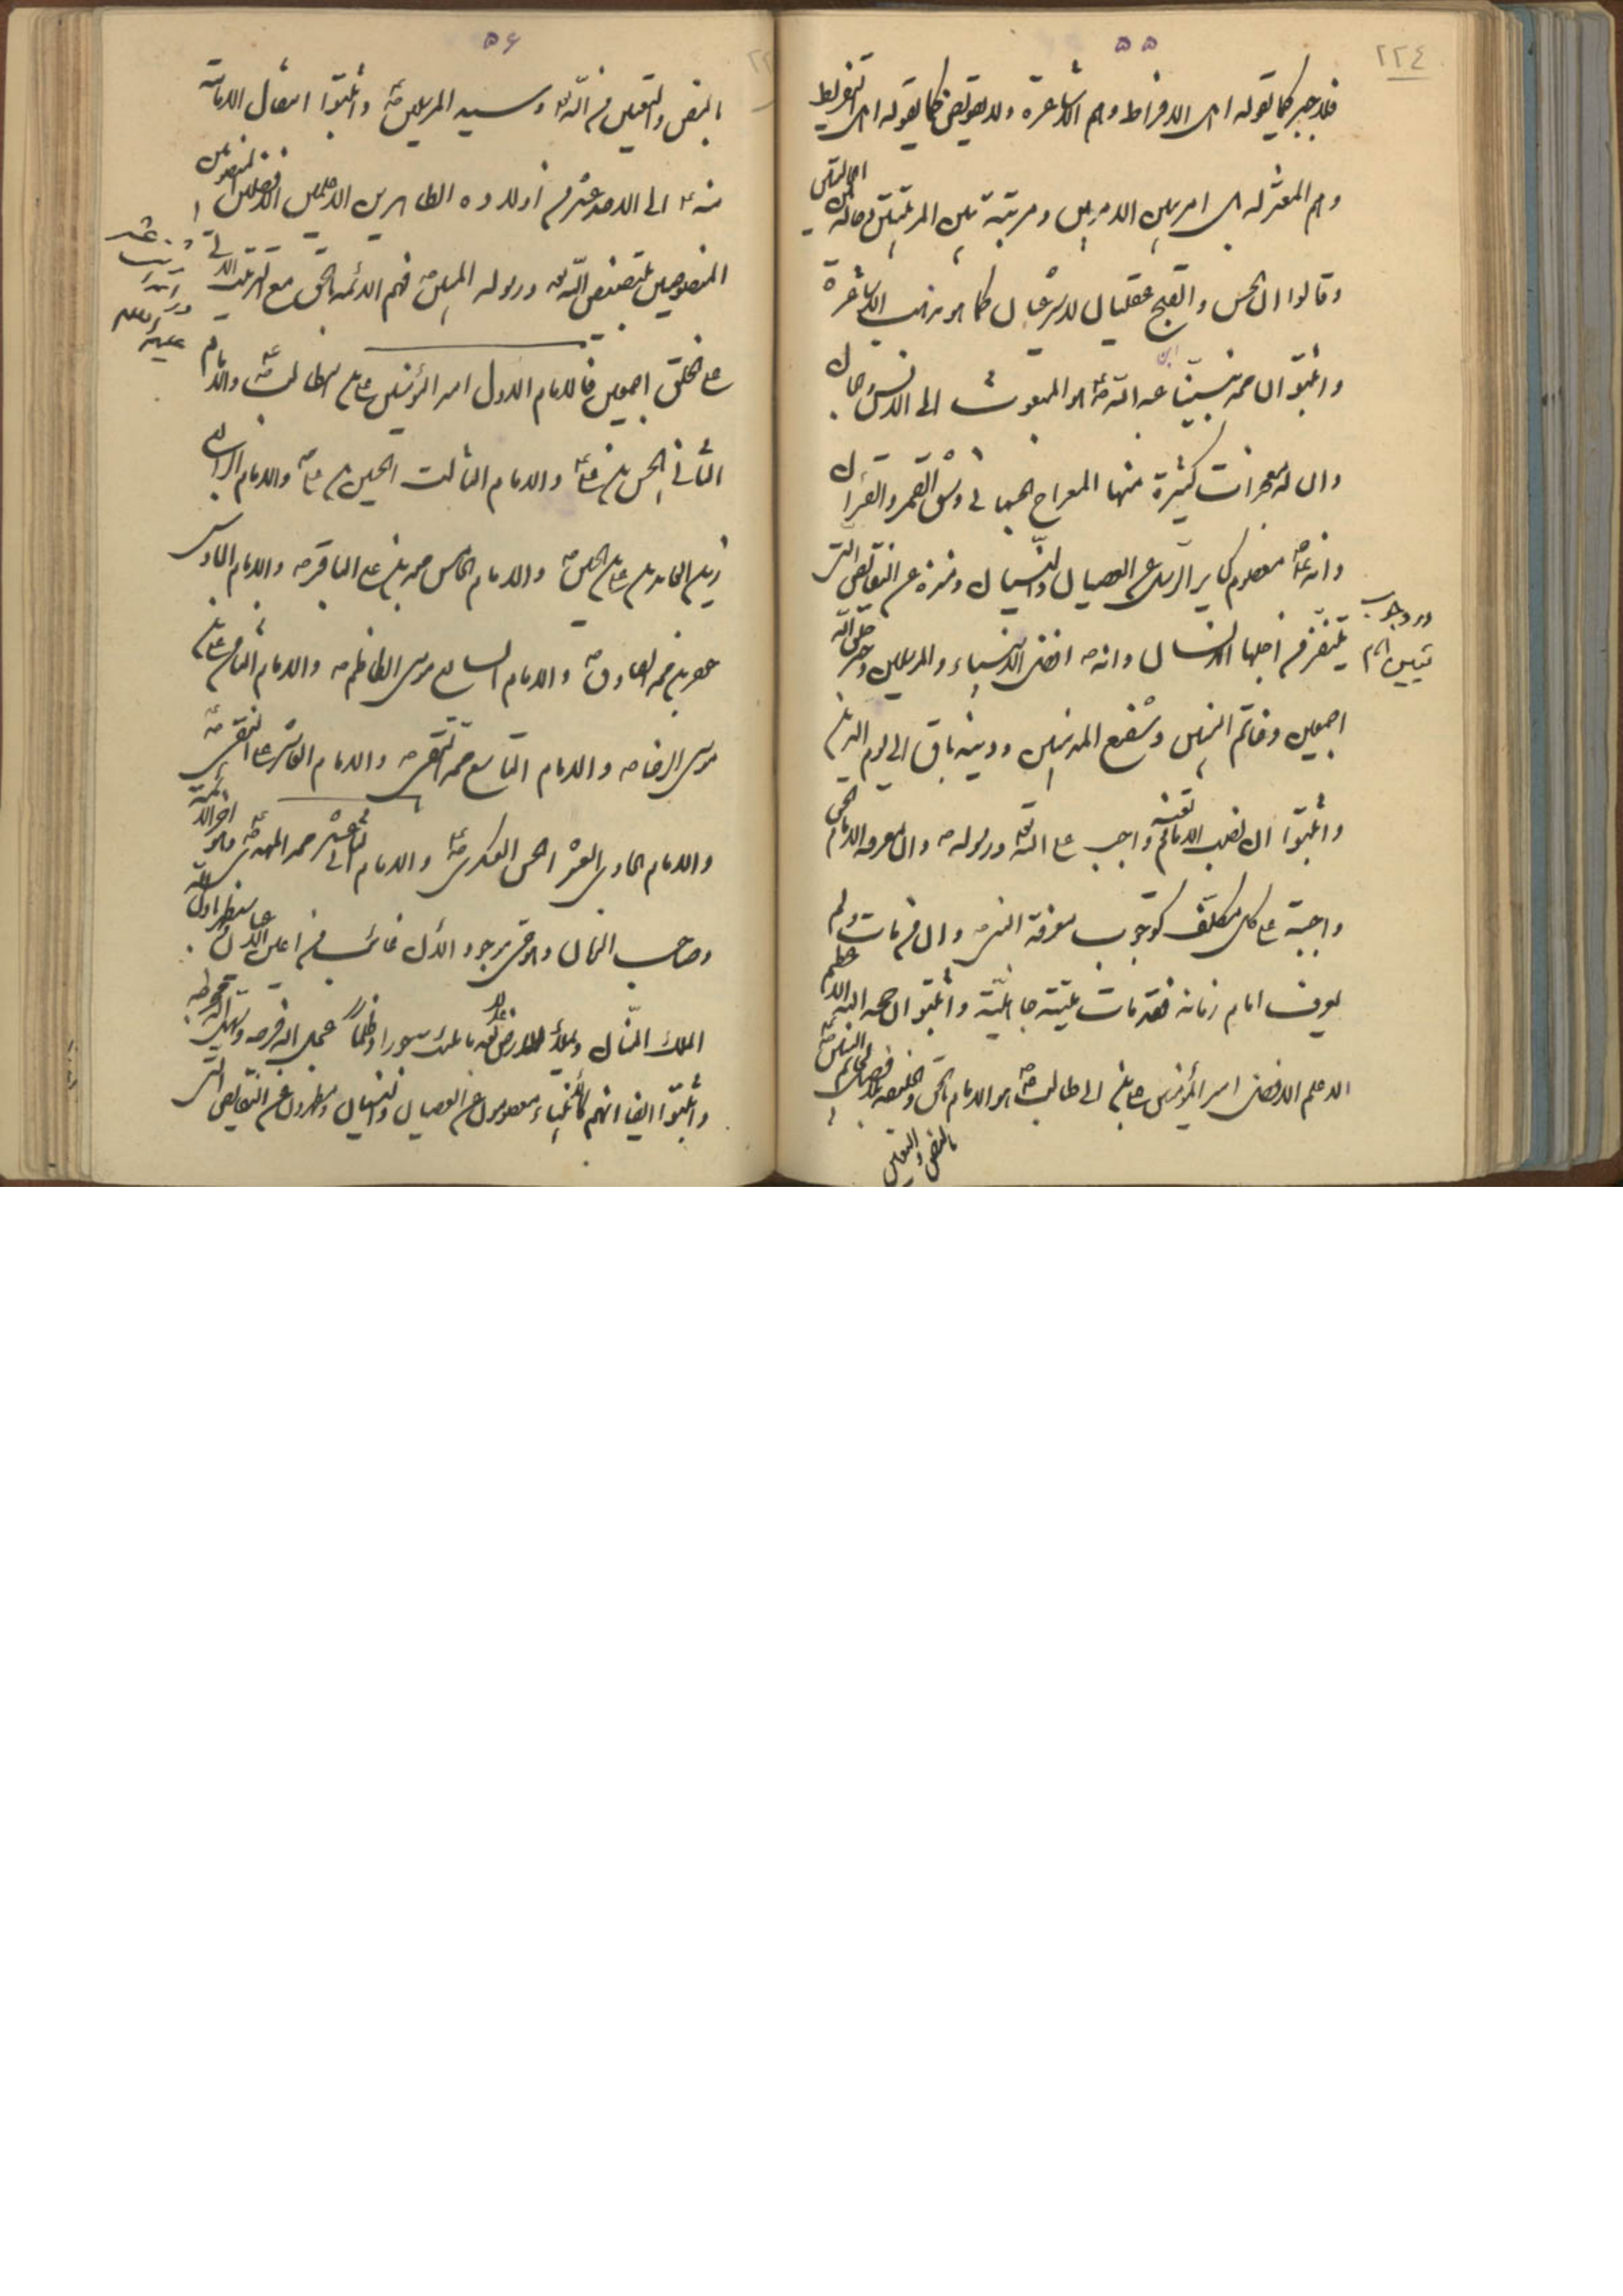 ٢٢٤
٥٥
فلا جبر كما يقوله اهل الافراط وهم الاشاعرة ولا تفويض كما يقوله اهل التفريط
وهم المعتزلة بل امر بين الامرين ومرتبة بين المرتبتين وحالة بين الحالتين
وقالوا ان الحسن والقبح عقليان لا شرعيان كما هو مذهب الاشاعرة
واثبتوا ان محمد نبينا بن عبد الله ص هو المبعوث الى الانس وجان
وان له معجزات كثيرة منها المعراج الجسماني وشق القمر والقرآن
وانه ص معصوم كساير الرسل عن العصيان والنسيان ومنزه عن النقايص التي
يتنفر من اجلها الانسان وانه ص افضل الانبياء والمرسلين وخير خلق الله
اجمعين وخاتم النبيين وشفيع المذنبين ودينه باق الى يوم الدين
واثبتوا ان نصب الامام وتعينه واجب على الله تع ورسوله ص وان معرفة الامام الحق
واجبة على كل مكلف كوجوب معرفة النبي ص وان من مات ولم
يعرف امام زمانه فقد مات ميتة جاهلية واثبتوا ان حجة الله الاعظم
الاعلم الافضل امير المؤمنين علي بن ابي طالب ص هو الامام الحق والخليفة بلا فصل لخاتم النبيين ص
بالنص والتعيين
در وجوب
تعيين امام
٥٦
بالنص والتعيين من الله تع وسيد المرسلين ص واثبتوا انتقال الامامة
منه ع الى الاحد عشر من اولاده الطاهرين الاعلمين الافضلين المعصومين
المنصوصين بتنصيص الله تع ورسوله المبين ص فهم الائمة بالحق مع الترتيب الى
على الخلق اجمعين فالامام الاول امير المؤمنين علي بن ابي طالب ص والامام
الثاني الحسن بن علي ع والامام الثالث الحسين بن علي ص والامام الرابع
زين العابدين علي بن الحسين ص والامام الخامس محمد بن علي الباقر ص والامام السادس
جعفر بن محمد الصادق ص والامام السابع موسى الكاظم ص والامام الثامن علي بن
موسى الرضا ص والامام التاسع محمد التقي ص والامام العاشر علي النقي ص
والامام الحادي العشر الحسن العسكري ص والامام الثاني عشر محمد المهدي ص وهو آخر الائمة
وصاحب الزمان وهو حي موجود الآن غائب من اعين الناس
الملك المنان ويملأ الارض عدلا بعد ما ملئت جورا وظلما عجل الله فرجه وسهل الله مخرجه
واثبتوا ايضا انهم كالانبياء معصومون عن العصيان والنسيان ومطهرون عن النقايص التي
عليهم السلام